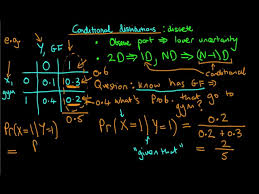 Conditional distributions : discrete
e.g.
Y, G.F
• Observe part → lower uncertainty
0 1
• 2D → 1D, ND → (N-1)D
X, gym
0 0.3 0.6
conditional
1 0.4 0.2 0.4
0.5
Question: know has GF ⇒
what's Prob. that go to gym?
Pr(X=1|Y=1)
=
Pr(X=1|Y=1) = 0.2
0.2 + 0.3
"given that"
= 2
5